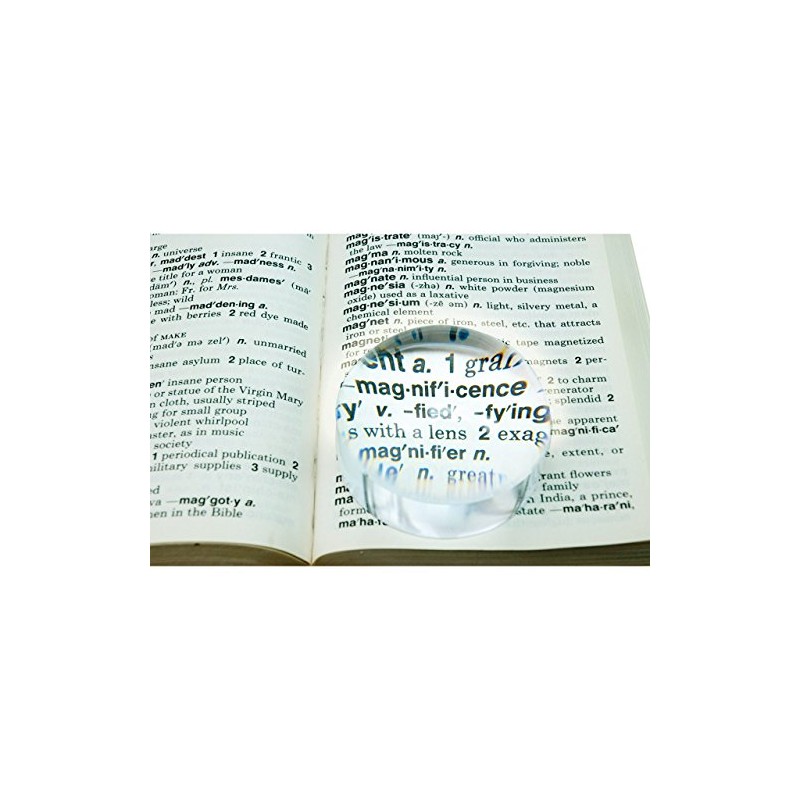 arge
n. universe
r, mad'dest 1 insane 2 frantic 3
—mad'ly adv. —mad'ness n.
title for a woman
däm') n., pl. mes·dames' (mā-
oman: Fr. for Mrs.
less; wild
mad —mad'den·ing a.
e with berries 2 red dye made
of MAKE
(mad'ə mə zel') n. unmarried
s
nsane asylum 2 place of tur-
en' insane person
or statue of the Virgin Mary
n cloth, usually striped
g for small group
violent whirlpool
ster, as in music
society
1 periodical publication 2
military supplies 3 supply
ed
wa —mag'got·y a.
men in the Bible
mag'is·trate' (maj'-) n. official who administers
the law —mag'is·tra·cy n.
mag'ma n. molten rock
mag·nan'i·mous a. generous in forgiving; noble
—mag'na·nim'i·ty n.
mag'nate n. influential person in business
mag·ne'sia (-zhə) n. white powder (magnesium
oxide) used as a laxative
mag·ne'si·um (-zē əm) n. light, silvery metal, a
chemical element
mag'net n. piece of iron, steel, etc. that attracts
iron or steel
magnet tic tape magnetized
for magnets 2 per-
ent a. 1 gran
2 to charm
—mag·nif'i·cence enerator
splendid 2
y' v. –fied', –fy'ing
e apparent
s with a lens 2 exag mag'ni·fi·ca'
mag'ni·fi'er n. e, extent, or
n. great grant flowers
family
n India, a prince,
form state —ma'ha·ra'ni,
ma'ha·ra